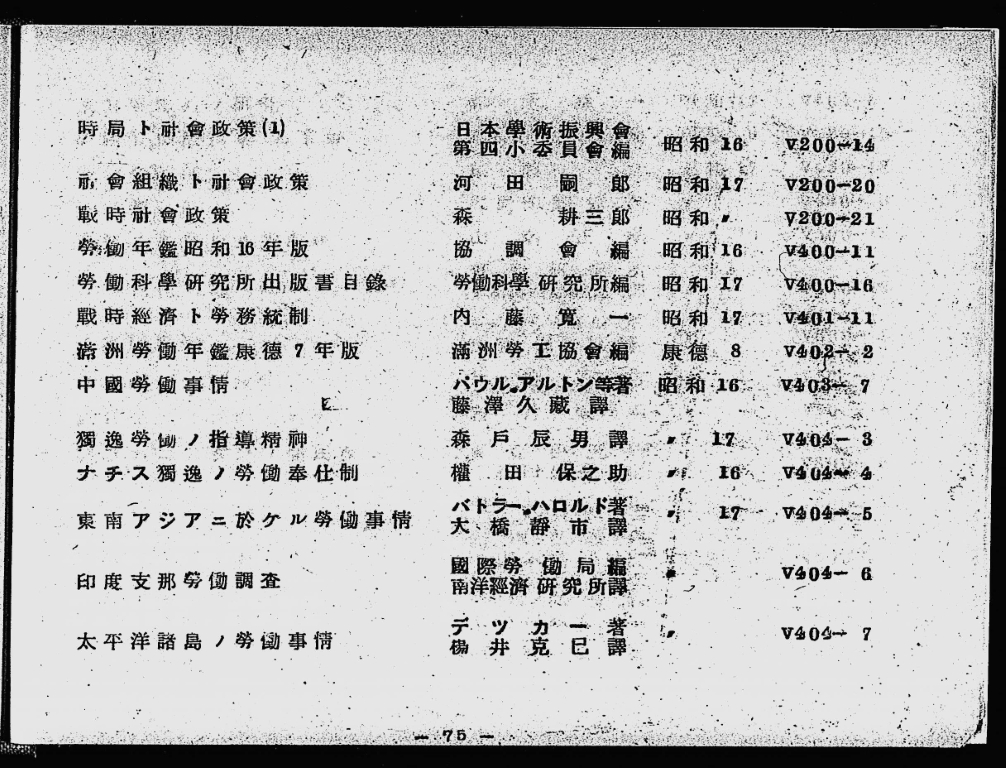 時局ト社會政策(1) 日本學術振興會
第四小委員會編 昭和16 V200-14
社會組織ト社會政策 河田嗣郎 昭和17 V200-20
戰時社會政策 森耕三郎 昭和〃 V200-21
勞働年鑑昭和16年版 協調會編 昭和16 V400-11
勞働科學研究所出版書目錄 勞働科學研究所編 昭和17 V400-16
戰時經濟ト勞務統制 内藤寬一 昭和17 V401-11
滿洲勞働年鑑康德7年版 滿洲勞工協會編 康德8 V402-2
中國勞働事情 パウル.アルトン等著 昭和16 V403-7
藤澤久藏譯
獨逸勞働ノ指導精神 森戶辰男譯 〃17 V404-3
ナチス獨逸ノ勞働奉仕制 權田保之助 〃16 V404-4
東南アジアニ於ケル勞働事情 バトラー.ハロルド著 〃17 V404-5
大橋靜市譯
印度支那勞働調査 國際勞働局編 〃 V404-6
南洋經濟研究所譯
太平洋諸島ノ勞働事情 デツカー著 〃 V404-7
楊井克巳譯
— 75 —